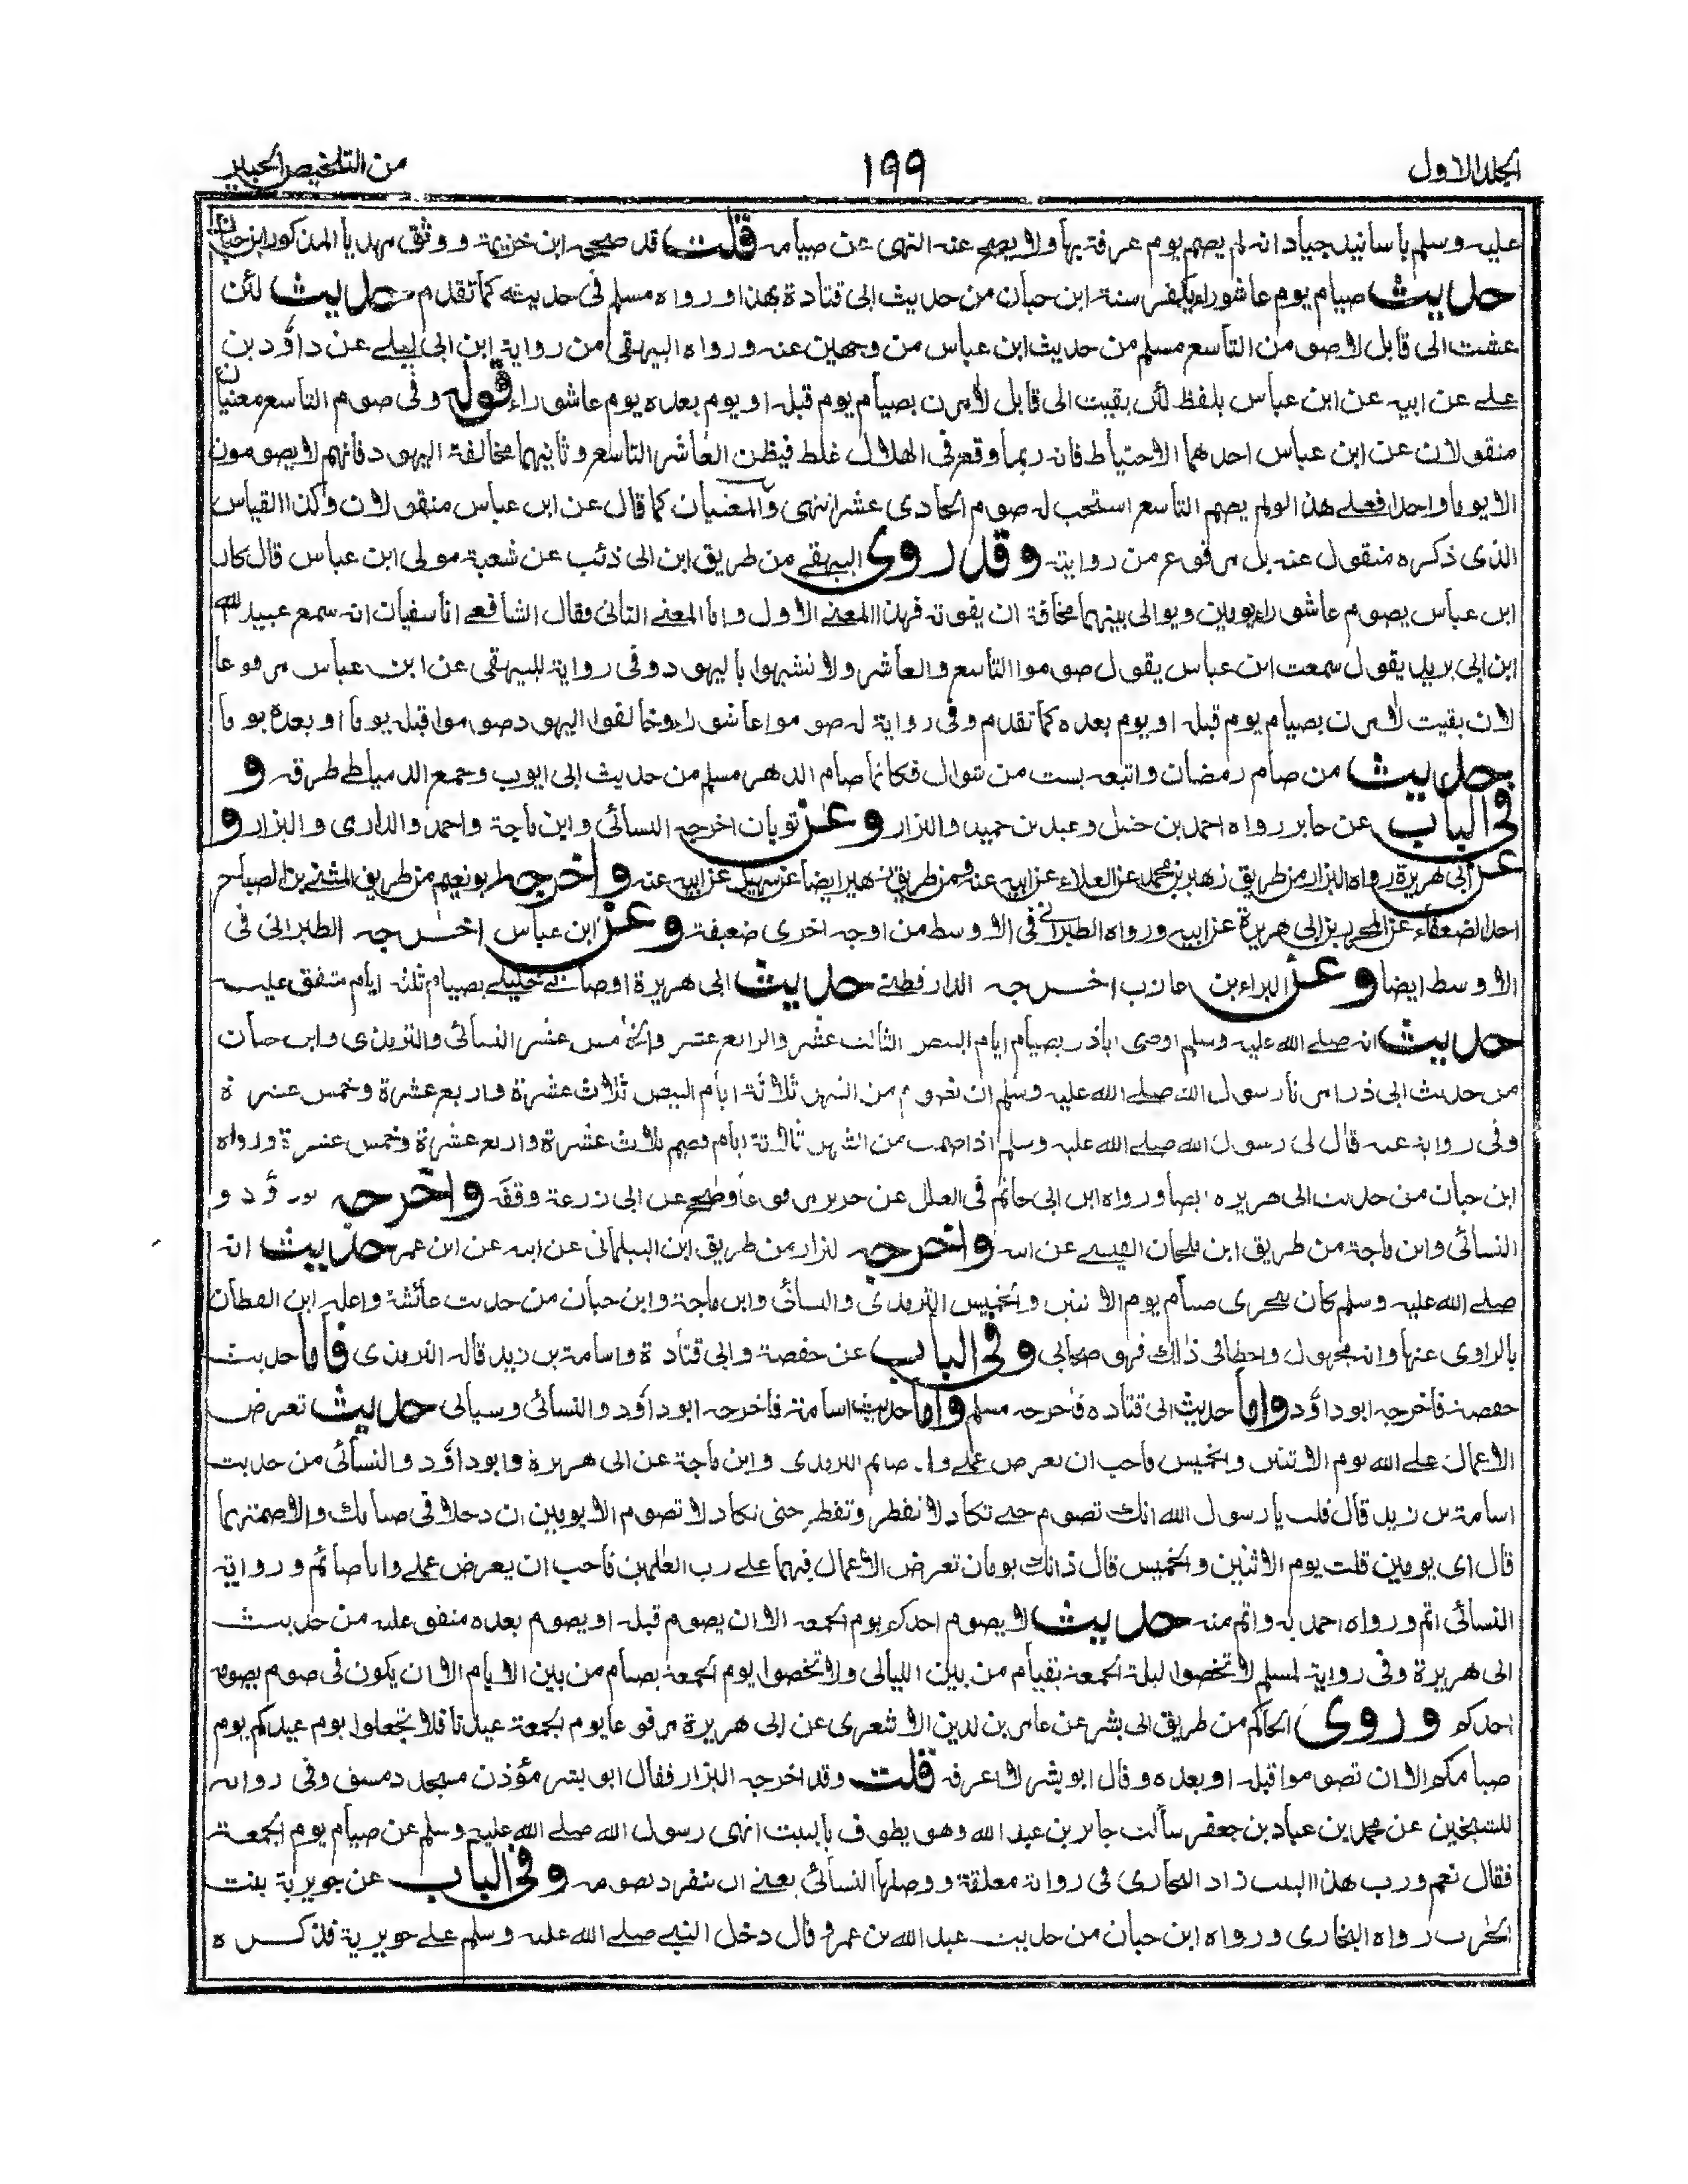 الجلد الاول
١٩٩
من التلخيص الحبير
عليه وسلم بأسانيد جياد انه لم يصم يوم عرفة بها ولا يصح عنه النهى عن صيامه قلت قد صححه ابن خزيمة ووثق مهديا المذكور ابن حبان
حديث صيام يوم عاشوراء يكفر سنة ابن حبان من حديث ابى قتادة بهذا ورواه مسلم فى حديثه كما تقدم حديث لئن
عشت الى قابل لاصومن التاسع مسلم من حديث ابن عباس من وجهين عنه ورواه البيهقى من رواية ابن ابى ليلے عن داؤد بن
علے عن ابيه عن ابن عباس بلفظ لئن بقيت الى قابل لآمرن بصيام يوم قبله او يوم بعده يوم عاشوراء قوله وفى صوم التاسع معنيان
منقولان عن ابن عباس احدهما الاحتياط فانه ربما وقع فى الهلال غلط فيظن العاشر التاسع وثانيهما مخالفة اليهود فانهم لا يصومون
الا يوما واحدا فعلے هذا لو لم يصم التاسع استحب له صوم الحادى عشر انتهى والمعنيان كما قال عن ابن عباس منقولان وكذا القياس
الذى ذكره منقول عنه بل مرفوع من روايته وقد روى البيهقے من طريق ابن ابى ذئب عن شعبة مولى ابن عباس قال كان
ابن عباس يصوم عاشوراء يومين ويوالى بينهما مخافة ان يفوته فهذا المعنے الاول واما المعنے الثانى فقال الشافعے انا سفيان انه سمع عبيد الله
ابن ابى يزيد يقول سمعت ابن عباس يقول صوموا التاسع والعاشر ولا تشبهوا باليهود وفى رواية للبيهقى عن ابن عباس مرفوعا
لان بقيت لآمرن بصيام يوم قبله او يوم بعده كما تقدم وفى رواية له صوموا عاشوراء وخالفوا اليهود صوموا قبله يوما او بعده يوما
حديث من صام رمضان واتبعه بست من شوال فكانما صام الدهر مسلم من حديث ابى ايوب وجمع الدمياطے طرقه و
فى الباب عن جابر رواه احمد بن حنبل وعبد بن حميد والبزار وعن ثوبان اخرجه النسائى وابن ماجة واحمد والدارى والبزار و
عن ابى هريرة رواه البزار من طريق زهير بن محمد عن العلاء عن ابيه عنه ومن طريق زهير ايضا عن سهيل عن ابيه عنه واخرجه ابو نعيم من طريق المثنے بن الصباح
احد الضعفاء عن المحرر بن ابى هريرة عن ابيه ورواه الطبرانے فى الاوسط من اوجه اخرى ضعيفة وعن ابن عباس اخرجه الطبرانى فى
الاوسط ايضا وعن البراء بن عازب اخرجه الدارقطنے حديث ابى هريرة اوصانے خليلے بصيام ثلثه ايام متفق عليه
حديث انه صلے الله عليه وسلم اوصى اباذر بصيام ايام البيض الثالث عشر والرابع عشر والخامس عشر النسائى والترمذى وابن حبان
من حديث ابى ذر امرنا رسول الله صلے الله عليه وسلم ان نصوم من الشهر ثلاثة ايام البيض ثلاث عشرة واربع عشرة وخمس عشرة
وفى رواية عنه قال لى رسول الله صلے الله عليه وسلم اذا صمت من الشهر ثلاثة ايام فصم ثلاث عشرة واربع عشرة وخمس عشرة ورواه
ابن حبان من حديث ابى هريرة ايضا ورواه ابن ابى حاتم فى العلل عن جرير مرفوعا وصحح عن ابى زرعة وقفه واخرجه ابو داؤد و
النسائى وابن ماجة من طريق ابن ملحان القيسے عن ابيه واخرجه البزار من طريق ابن البيلمانى عن ابيه عن ابن عمر حديث انه
صلے الله عليه وسلم كان يتحرى صيام يوم الاثنين والخميس الترمذى والنسائى وابن ماجة وابن حبان من حديث عائشة واعله ابن القطان
بالراوى عنها وانه مجهول واخطأ فى ذلك فهو صحابى وفى الباب عن حفصة وابى قتادة واسامة بن زيد قاله الترمذى فاما حديث
حفصة فاخرجه ابو داؤد واما حديث ابى قتاده فاخرجه مسلم واما حديث اسامة فاخرجه ابو داؤد والنسائى وسيأتى حديث تعرض
الاعمال علے الله يوم الاثنين والخميس فاحب ان يعرض عملے وانا صائم الترمذى وابن ماجة عن ابى هريرة وابو داؤد والنسائى من حديث
اسامة بن زيد قال قلت يا رسول الله انك تصوم حتے تكاد لا تفطر وتفطر حتى تكاد لا تصوم الا يومين ان دخلا فى صيامك والا صمتهما
قال اى يومين قلت يوم الاثنين والخميس قال ذانك يومان تعرض الاعمال فيهما علے رب العلمين فاحب ان يعرض عملے وانا صائم ورواية
النسائى اتم ورواه احمد به واتم منه حديث لا يصوم احدكم يوم الجمعه الا ان يصوم قبله او يصوم بعده متفق عليه من حديث
ابى هريرة وفى رواية لمسلم لا تخصوا ليلة الجمعة بقيام من بين الليالى ولا تخصوا يوم الجمعة بصيام من بين الايام الا ان يكون فى صوم يصومه
احدكم وروى الحاكم من طريق ابى بشر عن عامر بن لدين الاشعرى عن ابى هريرة مرفوعا يوم الجمعة عيدنا فلا تجعلوا يوم عيدكم يوم
صيامكم الا ان تصوموا قبله او بعده وقال ابو بشر لا اعرفه قلت وقد اخرجه البزار فقال ابو بشر مؤذن مسجد دمشق وفى رواية
للشيخين عن محمد بن عباد بن جعفر سألت جابر بن عبد الله وهو يطوف بالبيت انهى رسول الله صلے الله عليه وسلم عن صيام يوم الجمعة
فقال نعم ورب هذا البيت زاد البخارى فى رواية معلقة ووصلها النسائى يعنے ان ينفرد بصومه وفى الباب عن جويرية بنت
الحارث رواه البخارى ورواه ابن حبان من حديث عبد الله بن عمرو قال دخل النبے صلے الله عليه وسلم علے جويرية فذكره